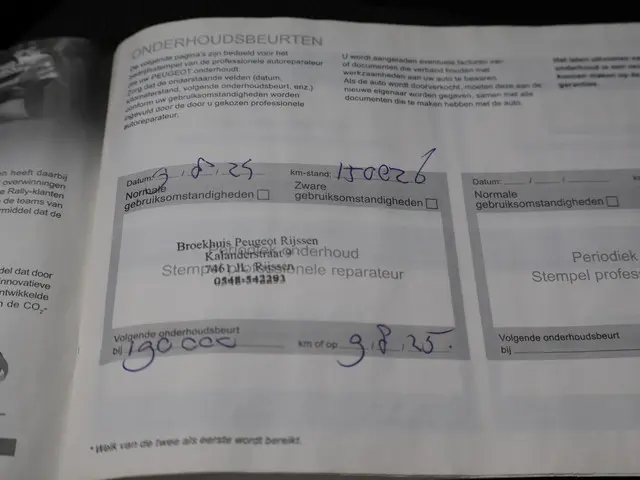 ONDERHOUDSBEURTEN
De volgende pagina's zijn bedoeld voor het
bedrijfstempel van de professionele autoreparateur
die uw PEUGEOT onderhoudt.
Zorg dat de onderstaande velden (datum,
kilometerstand, volgende onderhoudsbeurt, enz.)
conform uw gebruiksomstandigheden worden
ingevuld door de door u gekozen professionele
autoreparateur.
U wordt aangeraden eventuele facturen van
of documenten die verband houden met
werkzaamheden aan uw auto te bewaren.
Als de auto wordt doorverkocht, moeten deze aan de
nieuwe eigenaar worden gegeven, samen met alle
documenten die te maken hebben met de auto.
garantie.
en heeft daarbij
overwinningen
Rally-klanten
de teams van
middel dat de
del dat door
innovatieve
ontwikkelde
n de CO₂-
Datum: 9.8.24 km-stand: 150026
Normale
gebruiksomstandigheden
Zware
gebruiksomstandigheden
Broekhuis Peugeot Rijssen
Kalanderstraat 9
7461 JL Rijssen
0548-542293
Periodiek onderhoud
Stempel professionele reparateur
Volgende onderhoudsbeurt
bij 190000 km of op 9.8.25.
Datum:
Normale
gebruiksomstandigheden
Periodiek
Stempel profes
Volgende onderhoudsbeurt
bij
* Welk van de twee als eerste wordt bereikt.